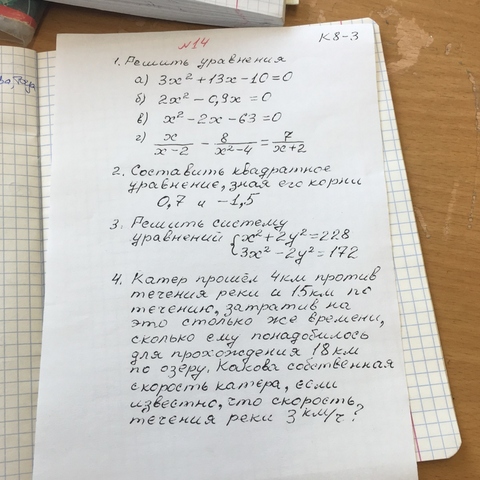 №14 К8-3
1. Решить уравнения
а) 3x² + 13x - 10 = 0
б) 2x² - 0,9x = 0
в) x² - 2x - 63 = 0
г) x/(x-2) - 8/(x²-4) = 7/(x+2)
2. Составить квадратное
уравнение, зная его корни
0,7 и -1,5
3. Решить систему
уравнений { x² + 2y² = 228
3x² - 2y² = 172
4. Катер прошёл 4 км против
течения реки и 15 км по
течению, затратив на
это столько же времени,
сколько ему понадобилось
для прохождения 18 км
по озеру. Какова собственная
скорость катера, если
известно, что скорость
течения реки 3 км/ч?